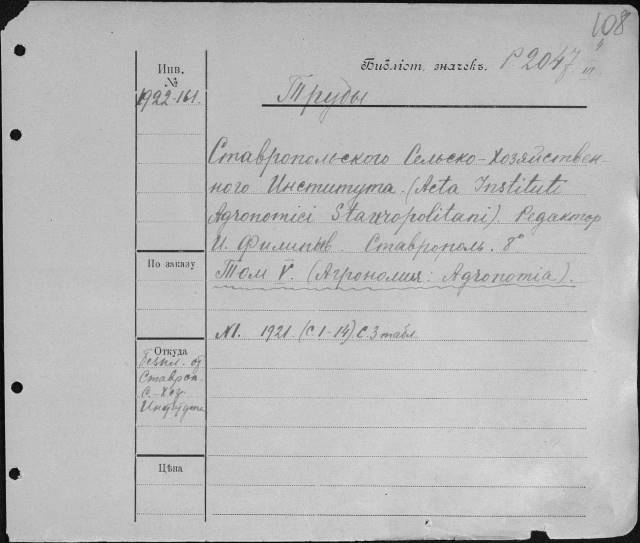 108
Инв.
№
1922-161.
Библіот. значекъ. P 2047
II
Труды
Ставропольского Сельско-хозяйствен-
ного Института (Acta Instituti
Agronomici Stavropolitani) Редактор
И. Филипьев. Ставрополь. 8°
Том V. (Агрономия: Agronomia).
По заказу
№1. 1921. (С 1-14) С. 3 табл.
Откуда
Безпл. от
Ставроп.
С. Хоз.
Института
Цѣна